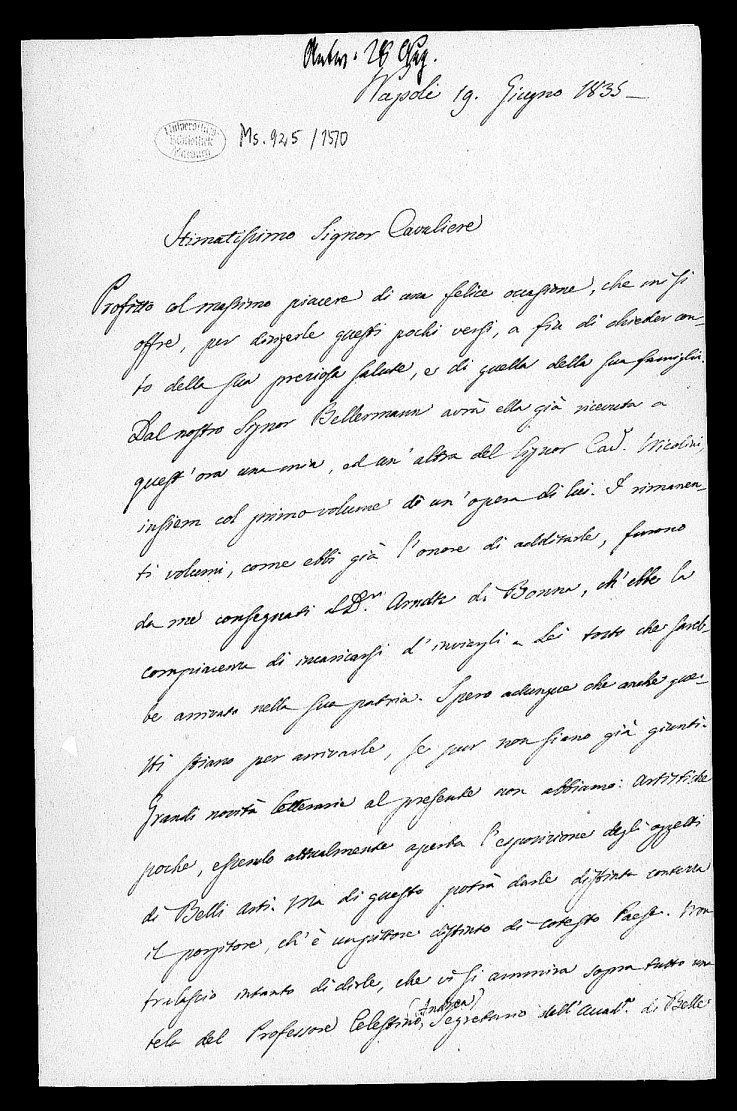 Antw. 28 Aug.
Napoli 19. Giugno 1835 –
Universitäts
Bibliothek
Marburg
Ms. 925 / 1570
Stimatissimo Signor Cavaliere
Profitto col massimo piacere di una felice occasione, che mi si
offre, per dirigerle questi pochi versi, a fin di chieder con-
to della sua preziosa salute, e di quella della sua famiglia.
Dal nostro Signor Bellermann avrà ella già ricevuta a
quest'ora una mia, ed un'altra del Signor Cav. Nicolini,
insiem col primo volume di un'opera di lui. I rimanen-
ti volumi, come ebbi già l'onore di additarle, furono
da me consegnati al Dr. Arndts di Bonna, ch'ebbe la
compiacenza di incaricarsi d'inviargli a Lei tosto che sareb-
be arrivato nella sua patria. Spero adunque che anche que-
sti stiano per arrivarle, se pur non siano già giunti.
Grandi novità letterarie al presente non abbiamo: artistiche
poche, essendo attualmente aperta l'esposizione degli oggetti
di Belli Arti. Ma di questo potrà darle distinta contezza
il porgitore, ch'è un pittore distinto di cotesto Paese. Non
tralascio intanto di dirle, che vi si ammira sopra tutto una
tela del Professore Celestino (Andrea), Segretario dell'Accad.a di Belle